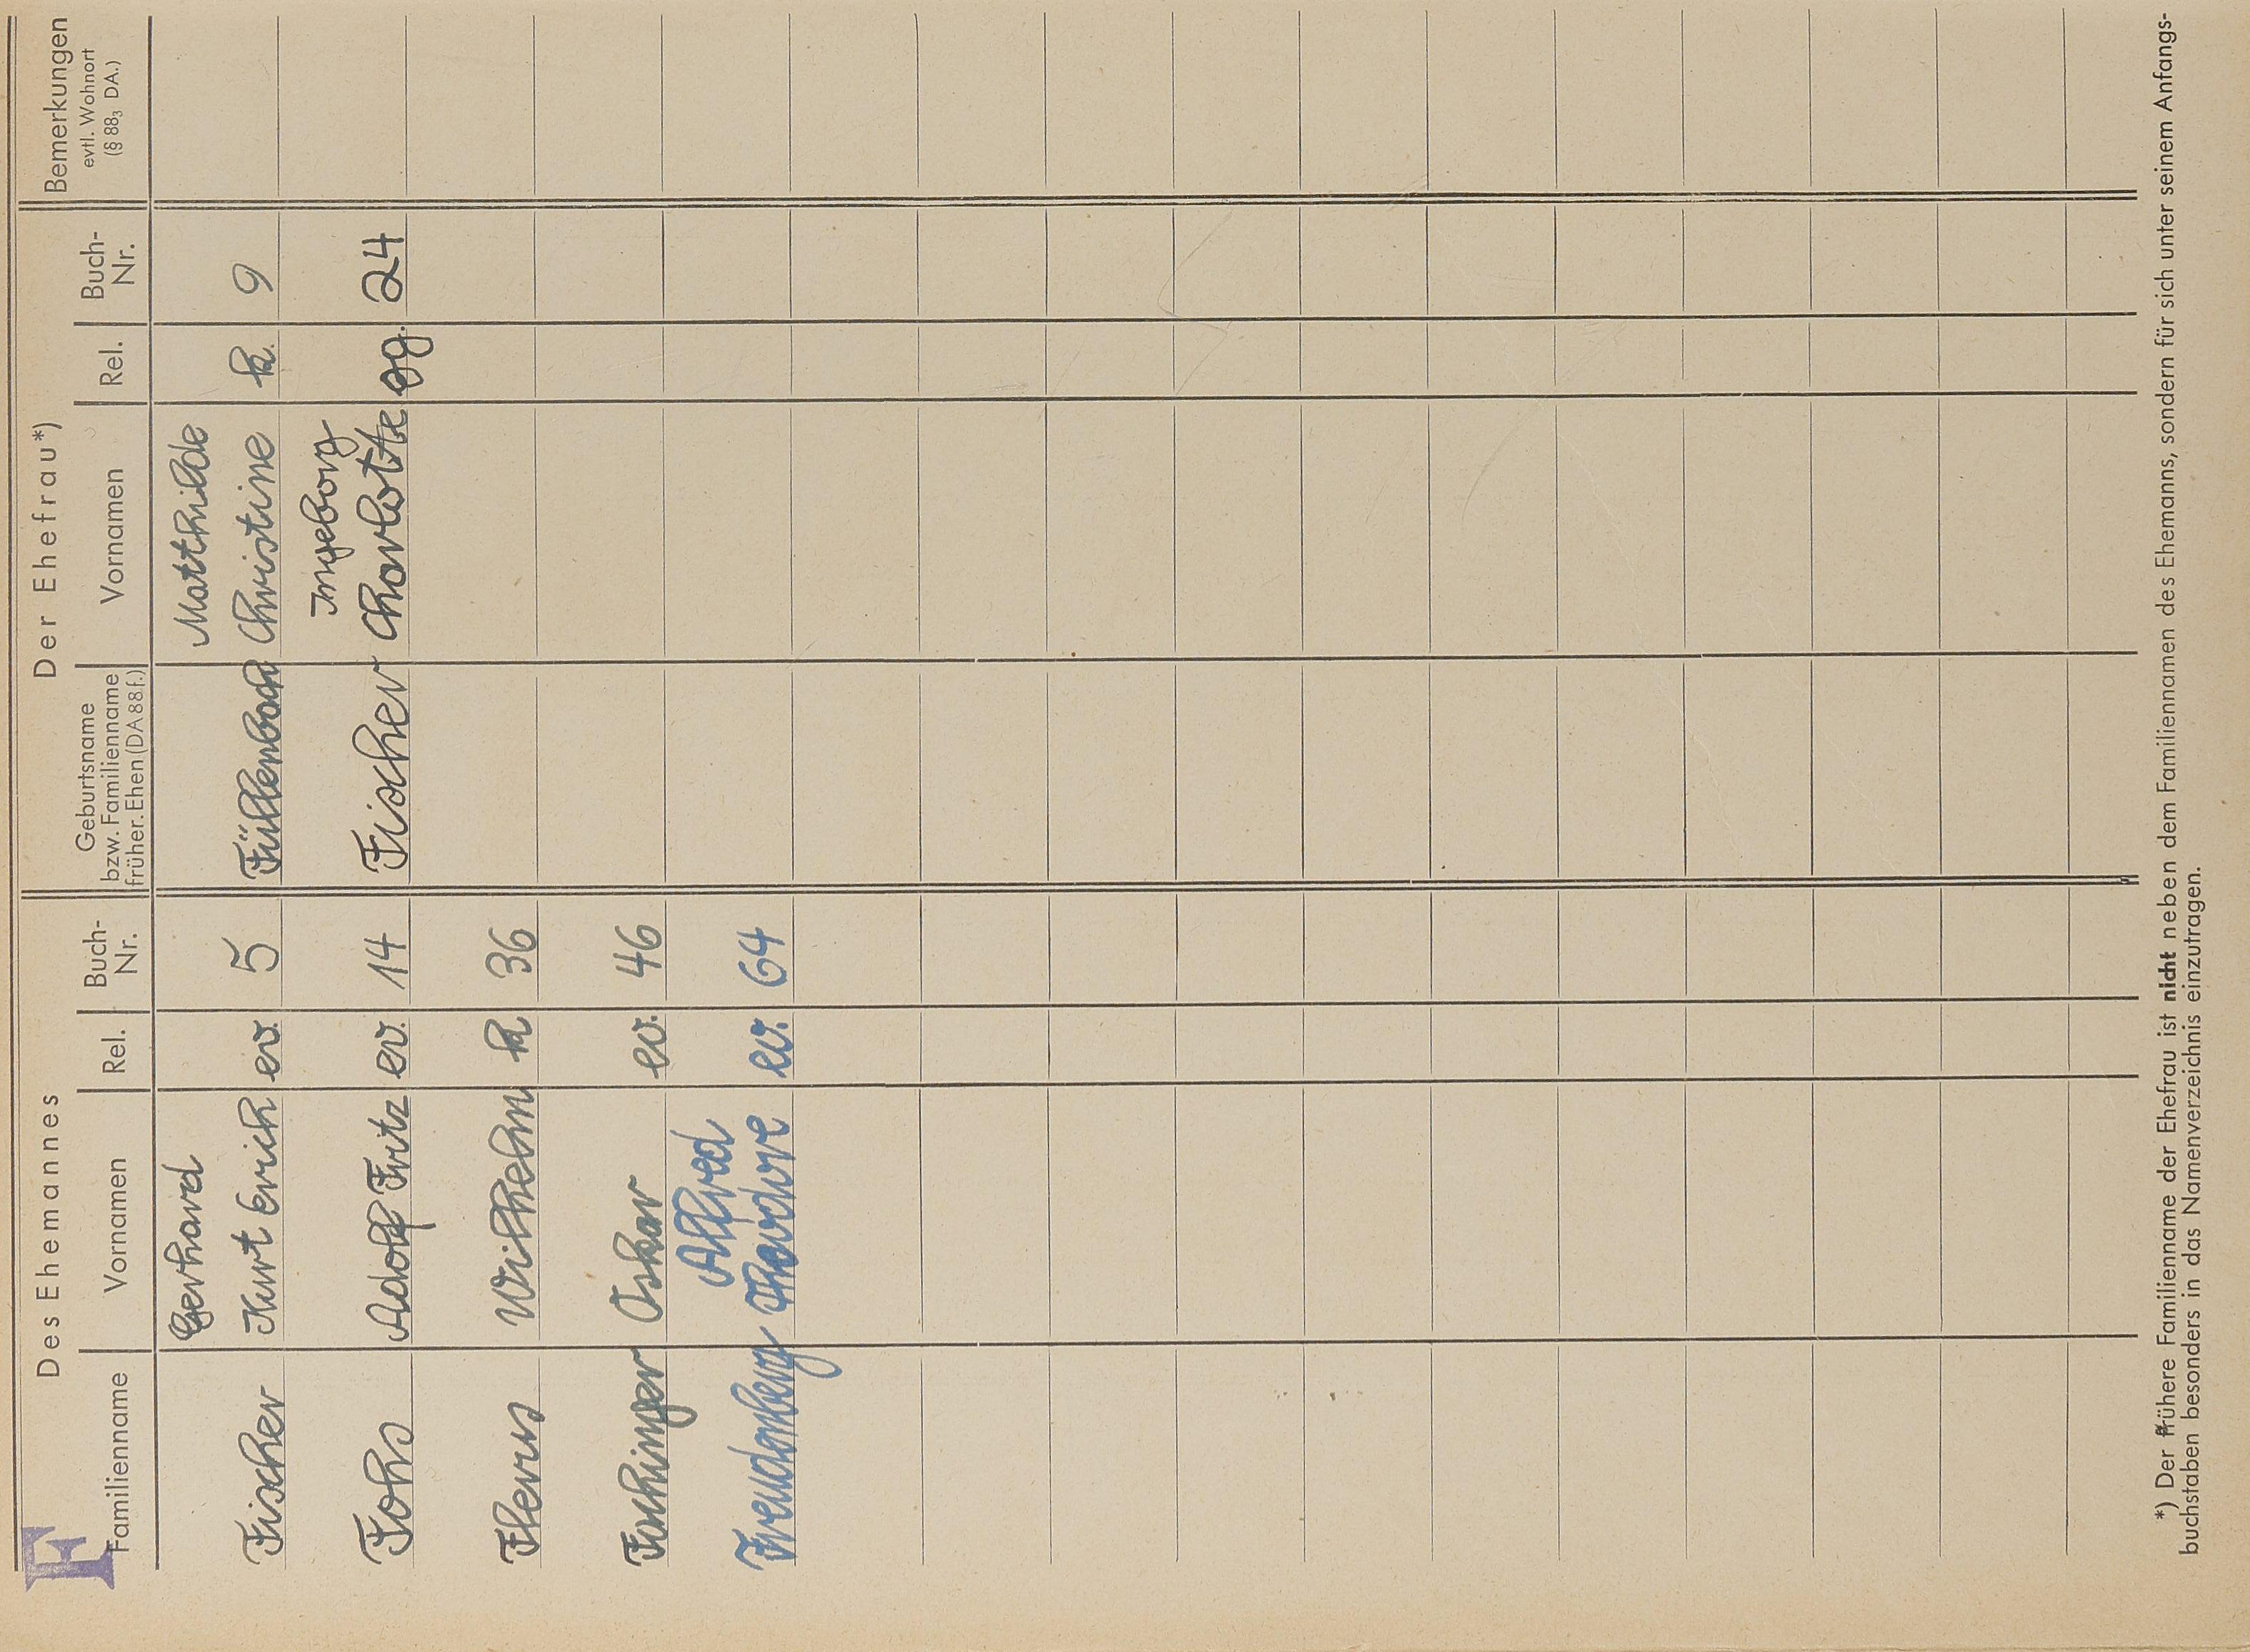 F
Des Ehemannes
Der Ehefrau*)
Bemerkungen
evtl. Wohnort
(§ 88₃ DA.)
Familienname
Vornamen
Rel.
Buch-
Nr.
Geburtsname
bzw. Familienname
früher. Ehen (DA 88 f.)
Vornamen
Rel.
Buch-
Nr.
Gerhard
Mathilde
Fischer Kurt Erich ev. 5 Füllenbach Christine k. 9
Ingeborg
Fohs Adolf Fritz ev. 14 Fischer Charlotte gg. 24
Flerus Wilhelm k 36
Fuchinger Oskar ev. 46
Alfred
Freudenberg Theodore ev. 64
*) Der frühere Familienname der Ehefrau ist nicht neben dem Familiennamen des Ehemanns, sondern für sich unter seinem Anfangs-
buchstaben besonders in das Namenverzeichnis einzutragen.